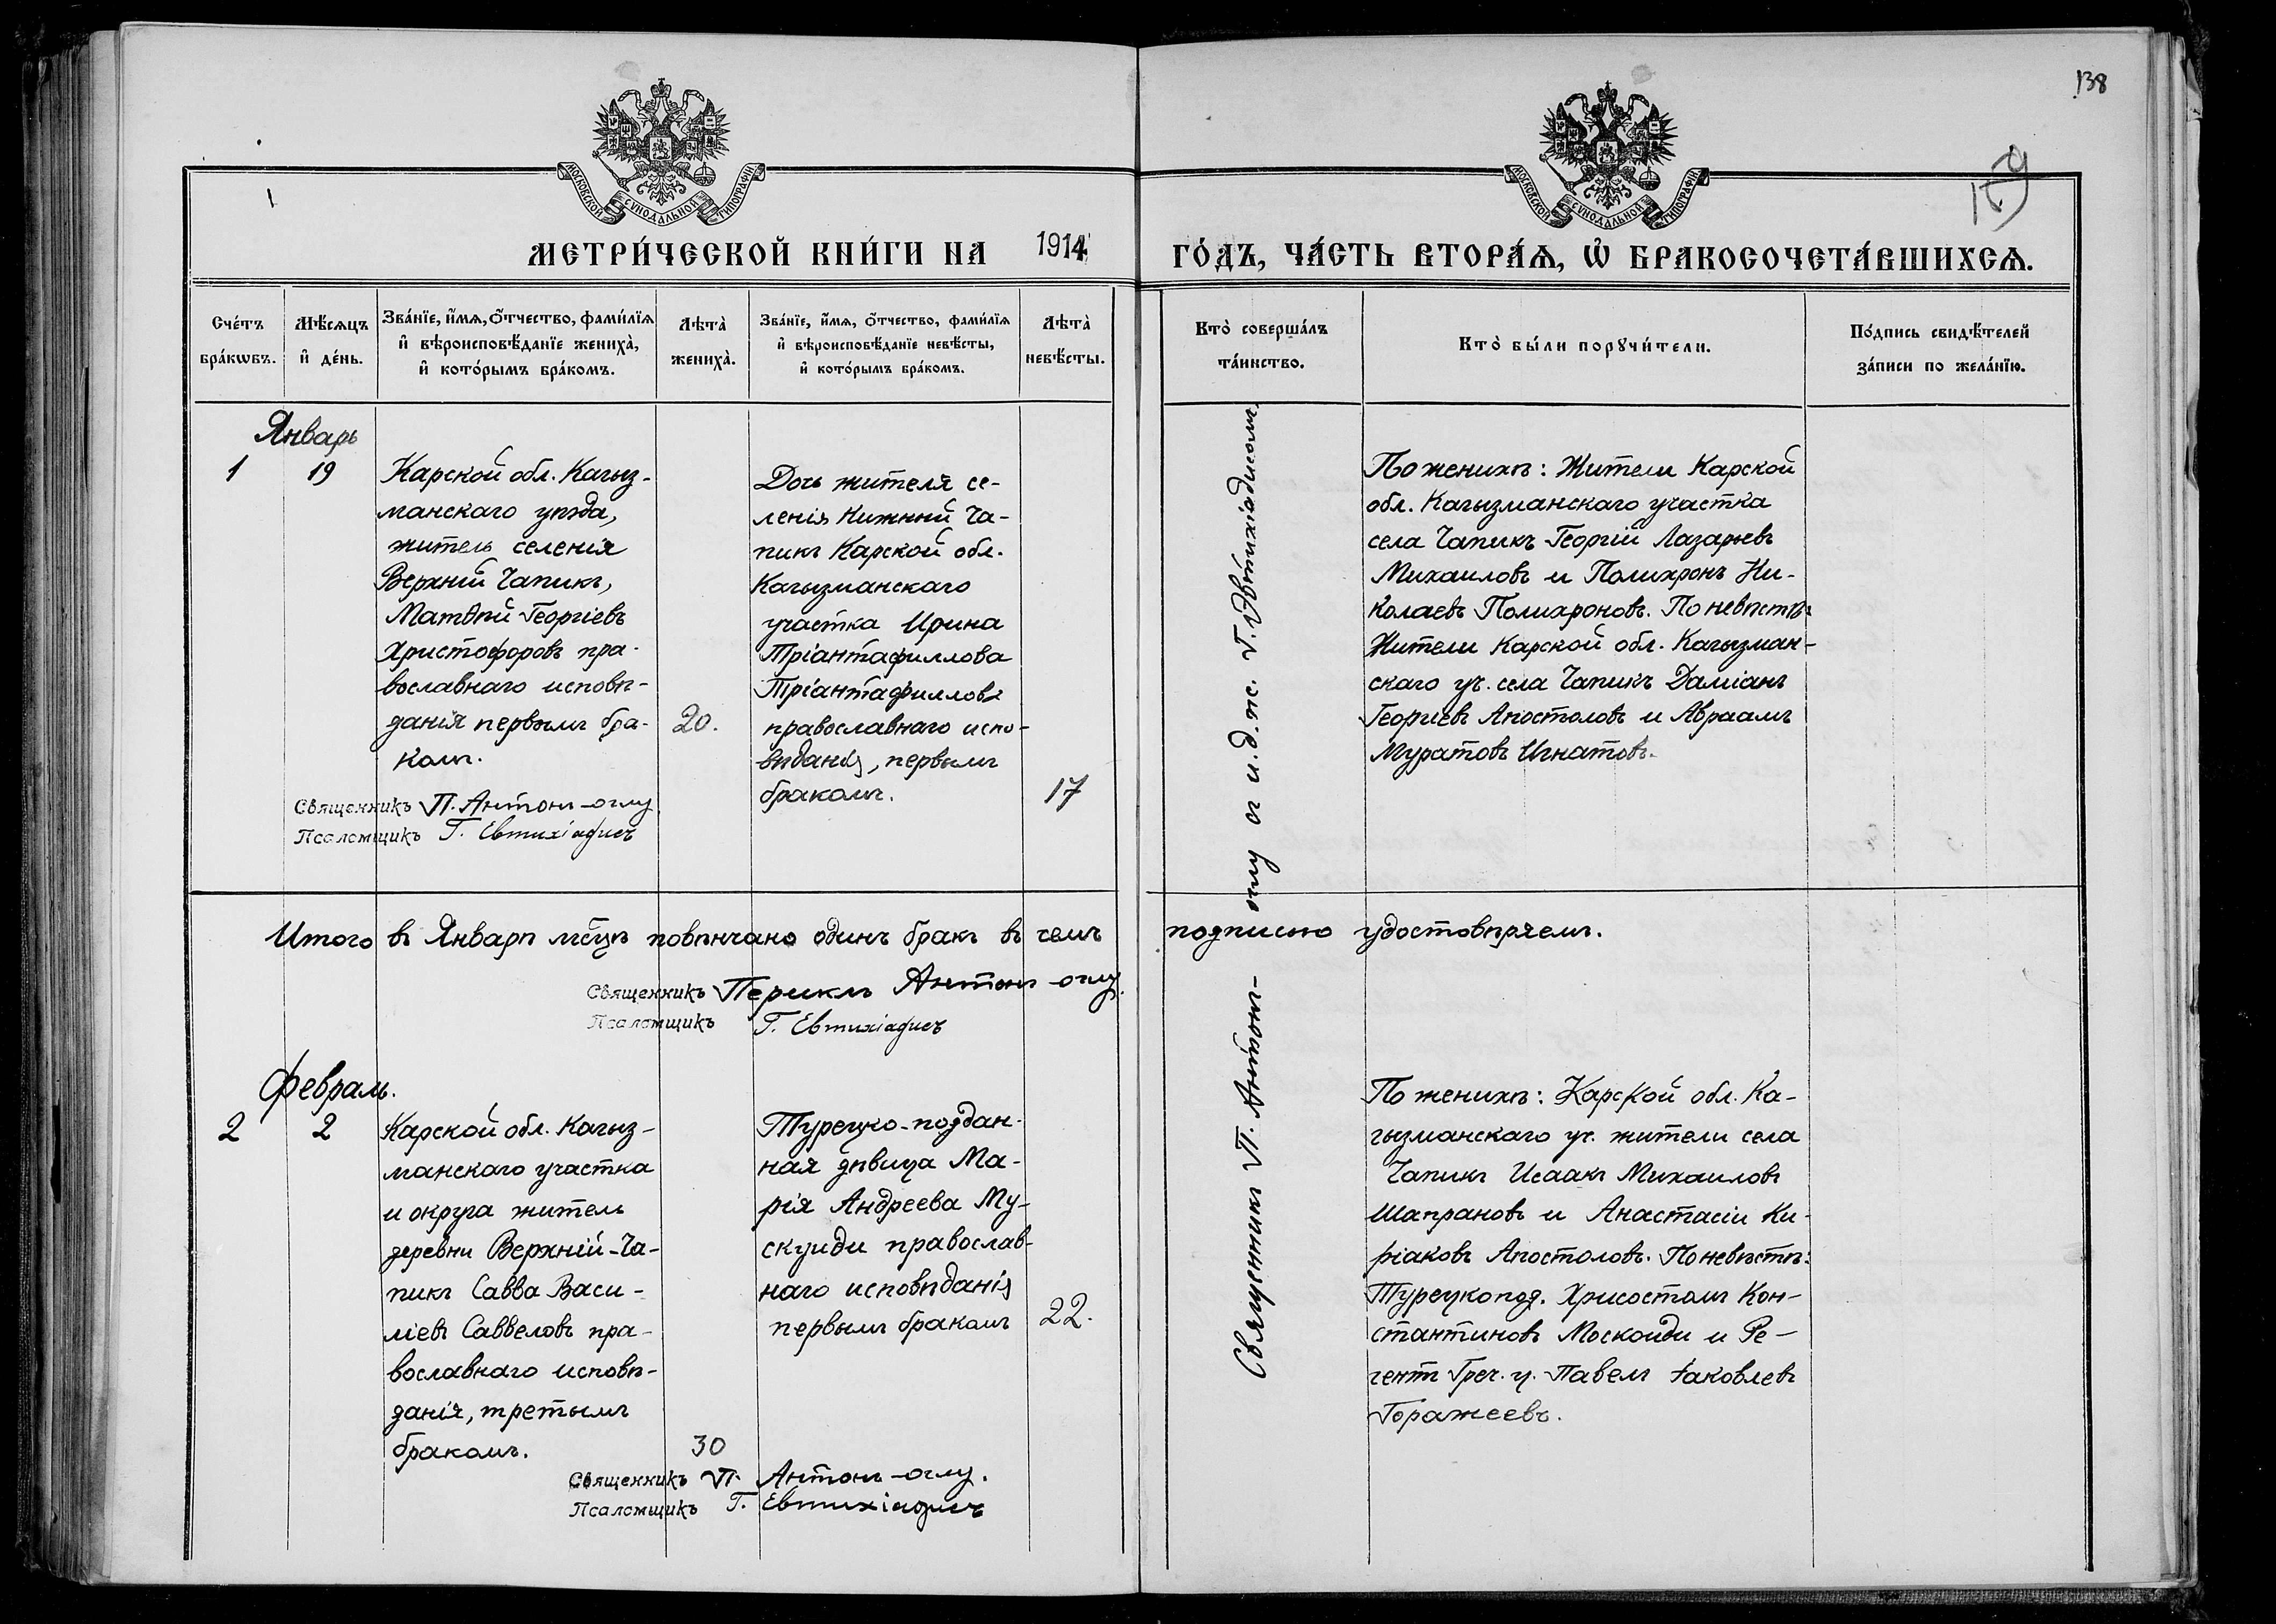 138
159
1
МОСКОВСКОЙ СѴНОДАЛЬНОЙ ТИПОГРАФІИ
МОСКОВСКОЙ СѴНОДАЛЬНОЙ ТИПОГРАФІИ
МЕТРИ́ЧЕСКОЙ КНИ́ГИ НА 1914 ГО́ДЪ, ЧА́СТЬ ВТОРА́Ѧ, Ѡ҆ БРАКОСОЧЕТА́ВШИХСѦ.
Сче́тъ
бра́кѡвъ.
Мѣ́сѧцъ
и҆ де́нь.
Зва́нїе, и҆́мѧ, ѻ҆́тчество, фами́лїѧ
и҆ вѣроисповѣ́данїе жениха̀,
и҆ кото́рымъ бра́комъ.
Лѣта̀
жениха̀.
Зва́нїе, и҆́мѧ, ѻ҆́тчество, фами́лїѧ
и҆ вѣроисповѣ́данїе невѣ́сты,
и҆ кото́рымъ бра́комъ.
Лѣта̀
невѣ́сты.
Кто̀ соверша́лъ
та́инство.
Кто̀ бы́ли порꙋчи́тели.
По́дпись свидѣ́телей
за́писи по жела́нїю.
Январь
1
19
Карской обл. Кагыз-
манскаго уѣзда,
житель селенія
Верхній Чапикъ,
Матѳѣй Георгіевъ
Христофоровъ пра-
вославнаго исповѣ-
данія первымъ бра-
комъ.
20.
Дочь жителя се-
ленія Нижній Ча-
пикъ Карской обл.
Кагызманскаго
участка Ирина
Тріантафиллова
Тріантафиллова
православнаго испо-
вѣданія, первымъ
бракомъ.
17
Священникъ П. Антонъ-оглу
Псаломщикъ Г. Евтихіадисъ
Священникъ П. Антонъ-оглу и и.д.пс. Г. Эвтихіадисомъ.
По женихѣ: Жители Карской
обл. Кагызманскаго участка
села Чапикъ Георгій Лазаревъ
Михаиловъ и Полихронъ Ни-
колаевъ Полихроновъ. По невѣстѣ:
Жители Карской обл. Кагызман-
скаго уч. села Чапикъ Даміанъ
Георгіевъ Апостоловъ и Авраамъ
Муратовъ Игнатовъ.
Итого въ Январѣ мѣцѣ повѣнчано одинъ бракъ въ чемъ подписью удостовѣряемъ.
Священникъ Периклъ Антонъ-оглу.
Псаломщикъ Г. Евтихіадисъ
Февраль.
2
2
Карской обл. Кагыз-
манскаго участка
и округа житель
деревни Верхній-Ча-
пикъ Савва Васи-
ліевъ Саввеловъ пра-
вославнаго исповѣ-
данія, третьимъ
бракомъ.
30
Турецко-поддан-
ная дѣвица Ма-
рія Андреева Му-
скуиди православ-
наго исповѣданія
первымъ бракомъ
22.
Священникъ П. Антонъ-оглу.
Псаломщикъ Г. Евтихіадисъ
По женихѣ: Карской обл. Ка-
гызманскаго уч. жители села
Чапикъ Исаакъ Михаиловъ
Шапрановъ и Анастасіи Ки-
ріаковъ Апостоловъ. По невѣстѣ:
Турецкопод. Хрисостомъ Кон-
стантиновъ Москоиди и Ре-
гентъ Греч. ц. Павелъ Іаковлевъ
Горажеевъ.